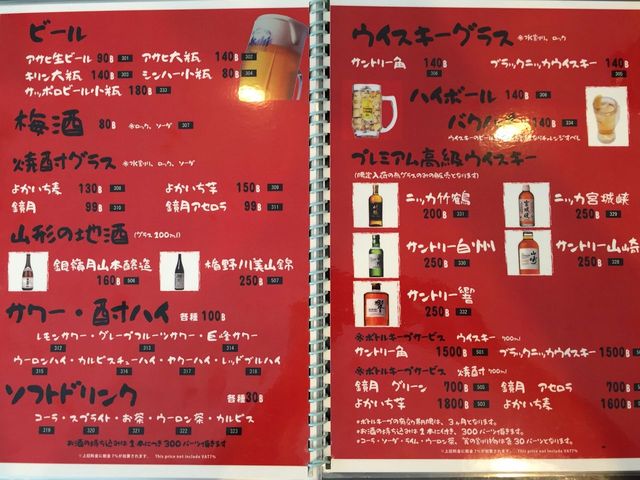 ビール
アサヒ生ビール 90B 301 アサヒ大瓶 140B 302
キリン大瓶 140B 303 シンハー小瓶 80B 304
サッポロビール小瓶 180B 333
梅酒 80B ※ロック、ソーダ 307
焼酎グラス ※水割り、ロック、ソーダ
よかいち麦 130B 308 よかいち芋 150B 309
鏡月 99B 310 鏡月アセロラ 99B 311
山形の地酒 (グラス 200ml)
銀嶺月山本醸造 160B 506
楯野川美山錦 250B 507
サワー・酎ハイ 各種 100B
レモンサワー・グレープフルーツサワー・巨峰サワー
312 313 314
ウーロンハイ・カルピスチューハイ・ヤクーハイ・レッドブルハイ
315 316 317 318
ソフトドリンク 各種 30B
コーラ・スプライト・お茶・ウーロン茶・カルピス
319 320 321 322 323
お酒の持ち込みは1本につき300バーツ頂きます
※上記料金に税金7%が加算されます。 This price not include VAT7%
ウイスキーグラス ※水割り、ロック
サントリー角 140B ブラックニッカウイスキー 140B 305
ハイボール 140B 306
バクハイ 140B 334
プレミアム高級ウイスキー
ニッカ竹鶴 200B 331
ニッカ宮城峡 250B 329
サントリー白州 250B 330
サントリー山崎 250B 328
サントリー響 250B 332
※ボトルキープサービス ウイスキー 700ml
サントリー角 1500B 501 ブラックニッカウイスキー 1500B
※ボトルキープサービス 焼酎 700ml
鏡月 グリーン 700B 505 鏡月 アセロラ 700B
よかいち芋 1800B よかいち麦 1600B
※ボトルキープの有効期限は、3ヶ月となります。
※お酒の持ち込みは1本につき、300バーツ頂きます。
※コーラ・ソーダ・ライム・ウーロン茶、等の割り物は各30バーツとなります。
※上記料金に税金7%が加算されます。 This price not include VAT7%